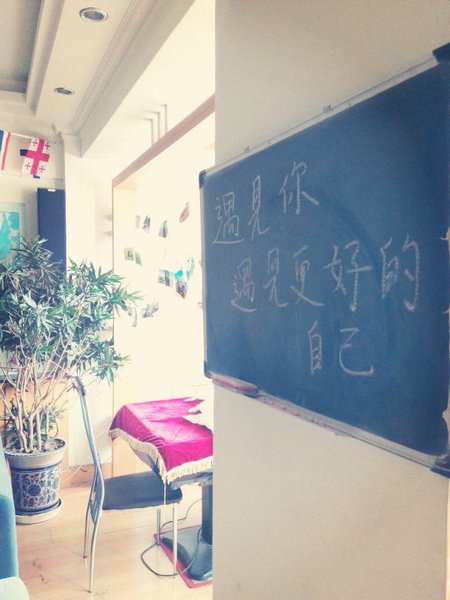 遇見你
遇見更好的
自己